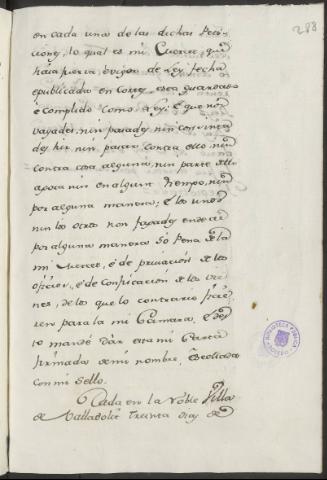 283
en cada una de las dichas Peti-
ciones, lo qual es mi Merced, que
haia fuerza, e vigor de Ley, fecha
e publicada en Cortes, e sea guardado
e complido como Ley. E que non
vayades, nin parades, nin consinta-
des hir, nin pasar contra ello, nin
contra cosa alguna, nin parte dello
agora nin en algunt tiempo, nin
por alguna manera; E los unos
nin los otros non fagades ende al
por alguna manera so Pena de la
mi Merced, é de privacion de los
oficios, é de confiscacion de los vie-
nes, de los que lo contrario ficie-
ren para la mi Camara, E des-
to mandé dar esta mi Carta
firmada de mi nombre, é sellada
con mi Sello.
Dada en la Noble Villa
de Valladolit Treinta dias de
BIBLIOTECA PUBLICA